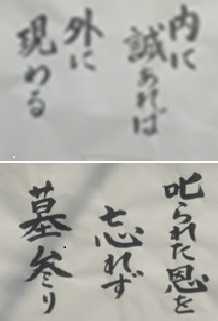 内に
誠あれば
外に
現わる
叱られた恩を
忘れず
墓参り